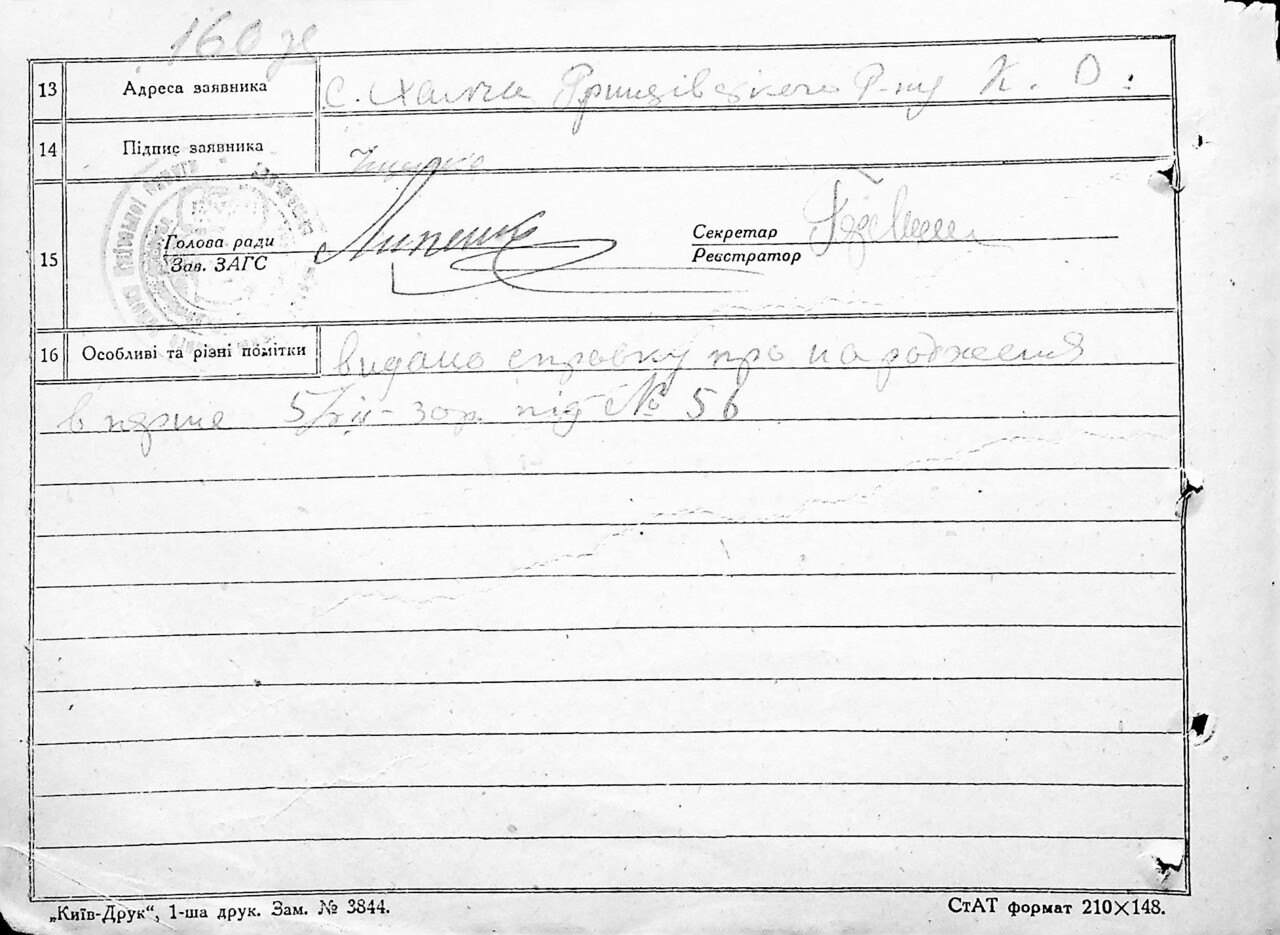 160
13 Адреса заявника с. Халча Р-ну К. О.
14 Підпис заявника
15 Голова ради
Зав. ЗАГС
Секретар
Реєстратор
16 Особливі та різні помітки видано справку про народження
вперше під № 56
„Київ-Друк“, 1-ша друк. Зам. № 3844.
СтАТ формат 210×148.